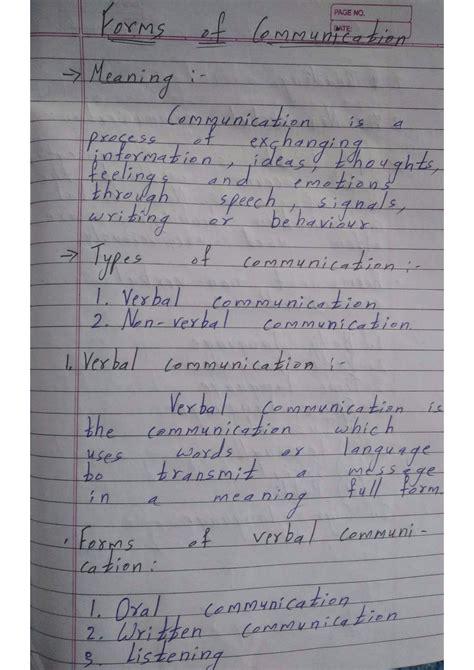 PAGE NO.
DATE:
Forms of Communication
→ Meaning :-
Communication is a
process of exchanging
information, ideas, thoughts,
feelings and emotions
through speech, signals,
writing or behaviour.
→ Types of communication :-
1. Verbal communication
2. Non-verbal communication.
1. Verbal communication :-
Verbal communication is
the communication which
uses words or language
to transmit a messege
in a meaning full form.
• Forms of verbal communi-
cation :
1. Oral communication
2. Written communication
3. Listening